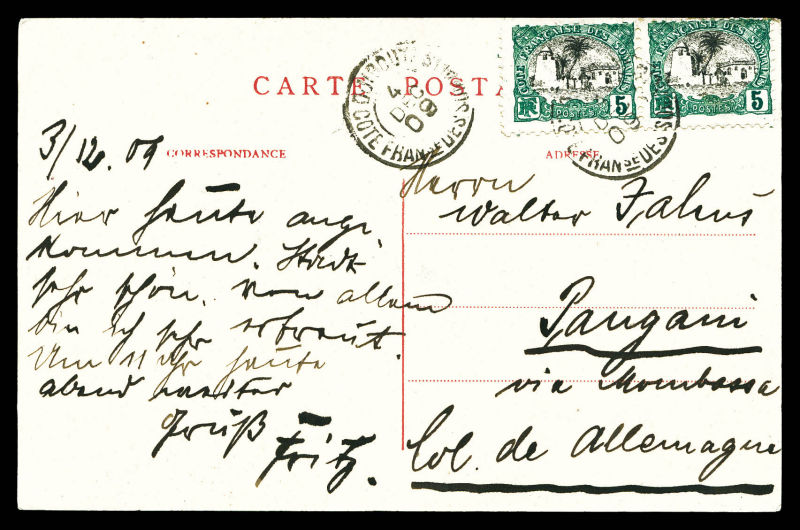 CARTE POSTA
CÔTE FRANÇAISE DES SOMALIS
RF 5
POSTES
CÔTE FRANÇAISE DES SOMALIS
RF 5
POSTES
DJIBOUTI
4 DEC 09
COTE FRANSE DES SOMALIS
CORRESPONDANCE
ADRESSE
3/12.09
Hier heute ange
kommen. Stadt
sehr schön. Von allem
bin ich sehr erfreut.
Um 11 Uhr heute
abend weiter
Gruß
Fritz.
Herrn
Walter
Pangani
via Mombassa
Col. de Allemagne